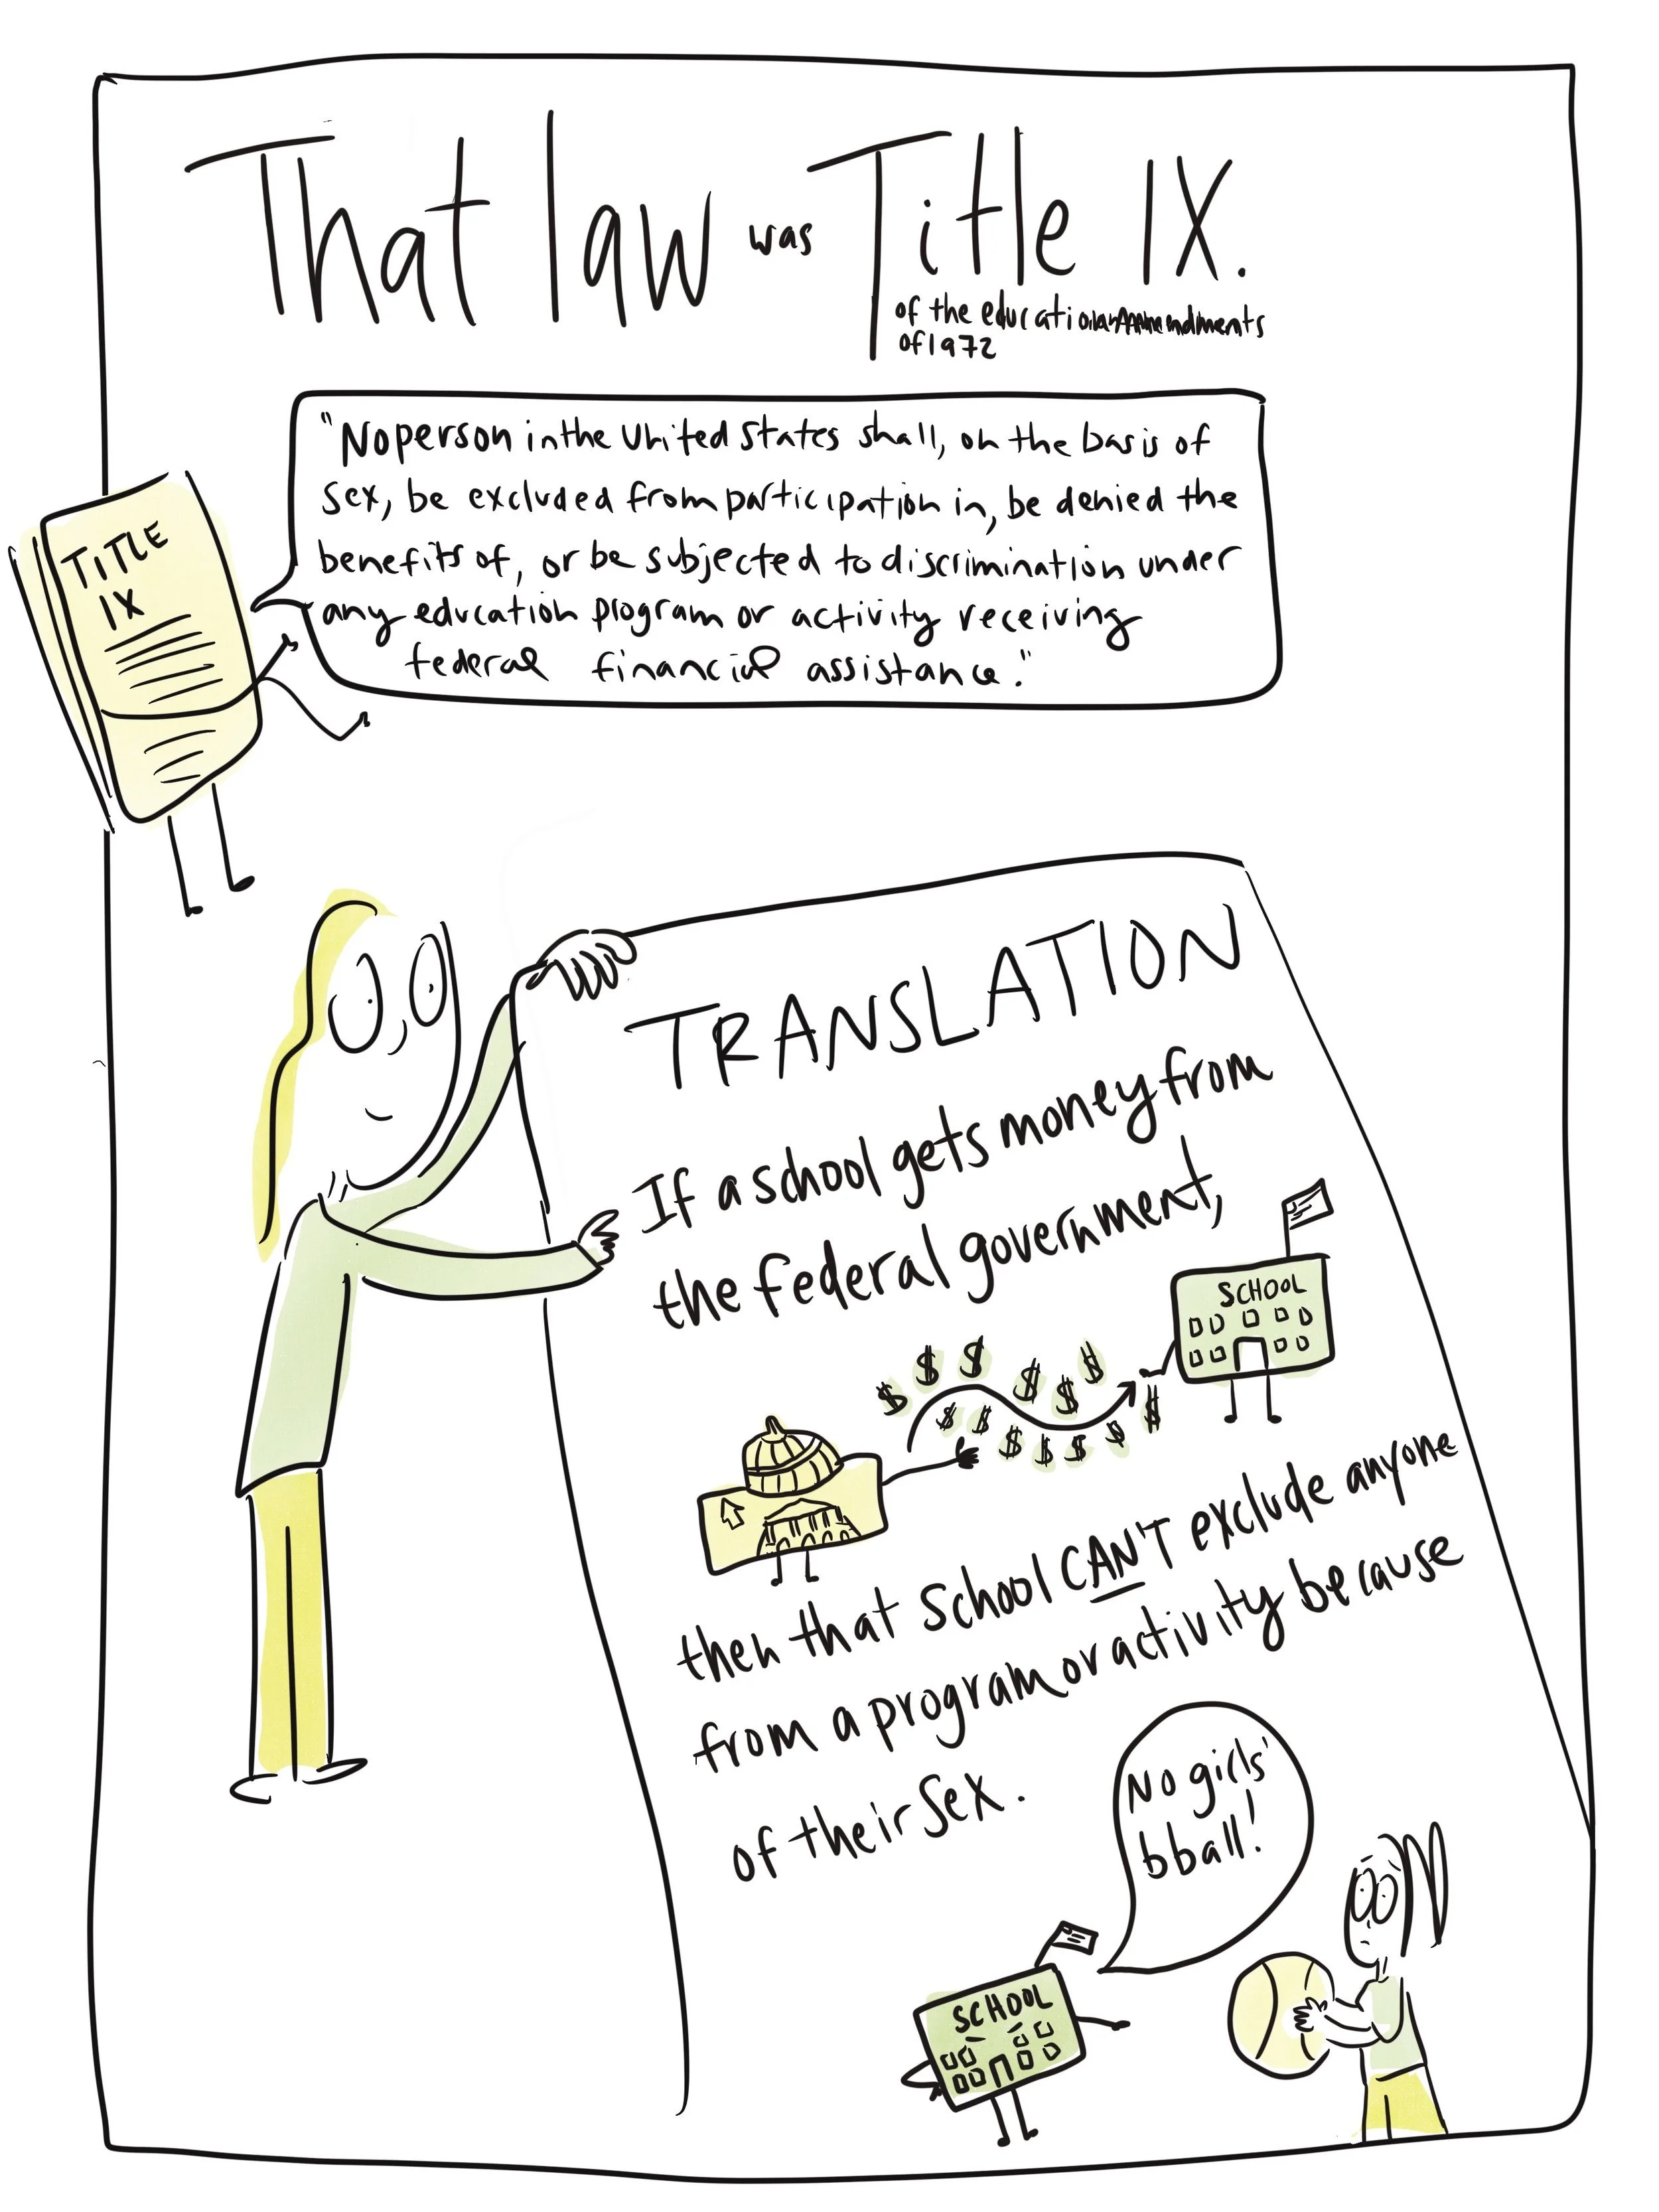 That law was Title IX.
of the education Amendments
of 1972
TITLE
IX
"No person in the United States shall, on the basis of
sex, be excluded from participation in, be denied the
benefits of, or be subjected to discrimination under
any education program or activity receiving
federal financial assistance."
TRANSLATION
If a school gets money from
the federal government,
SCHOOL
$ $ $ $ $ $
$ $ $ $ $ $ $
then that school CAN'T exclude anyone
from a program or activity because
of their sex.
No girls'
bball!
SCHOOL